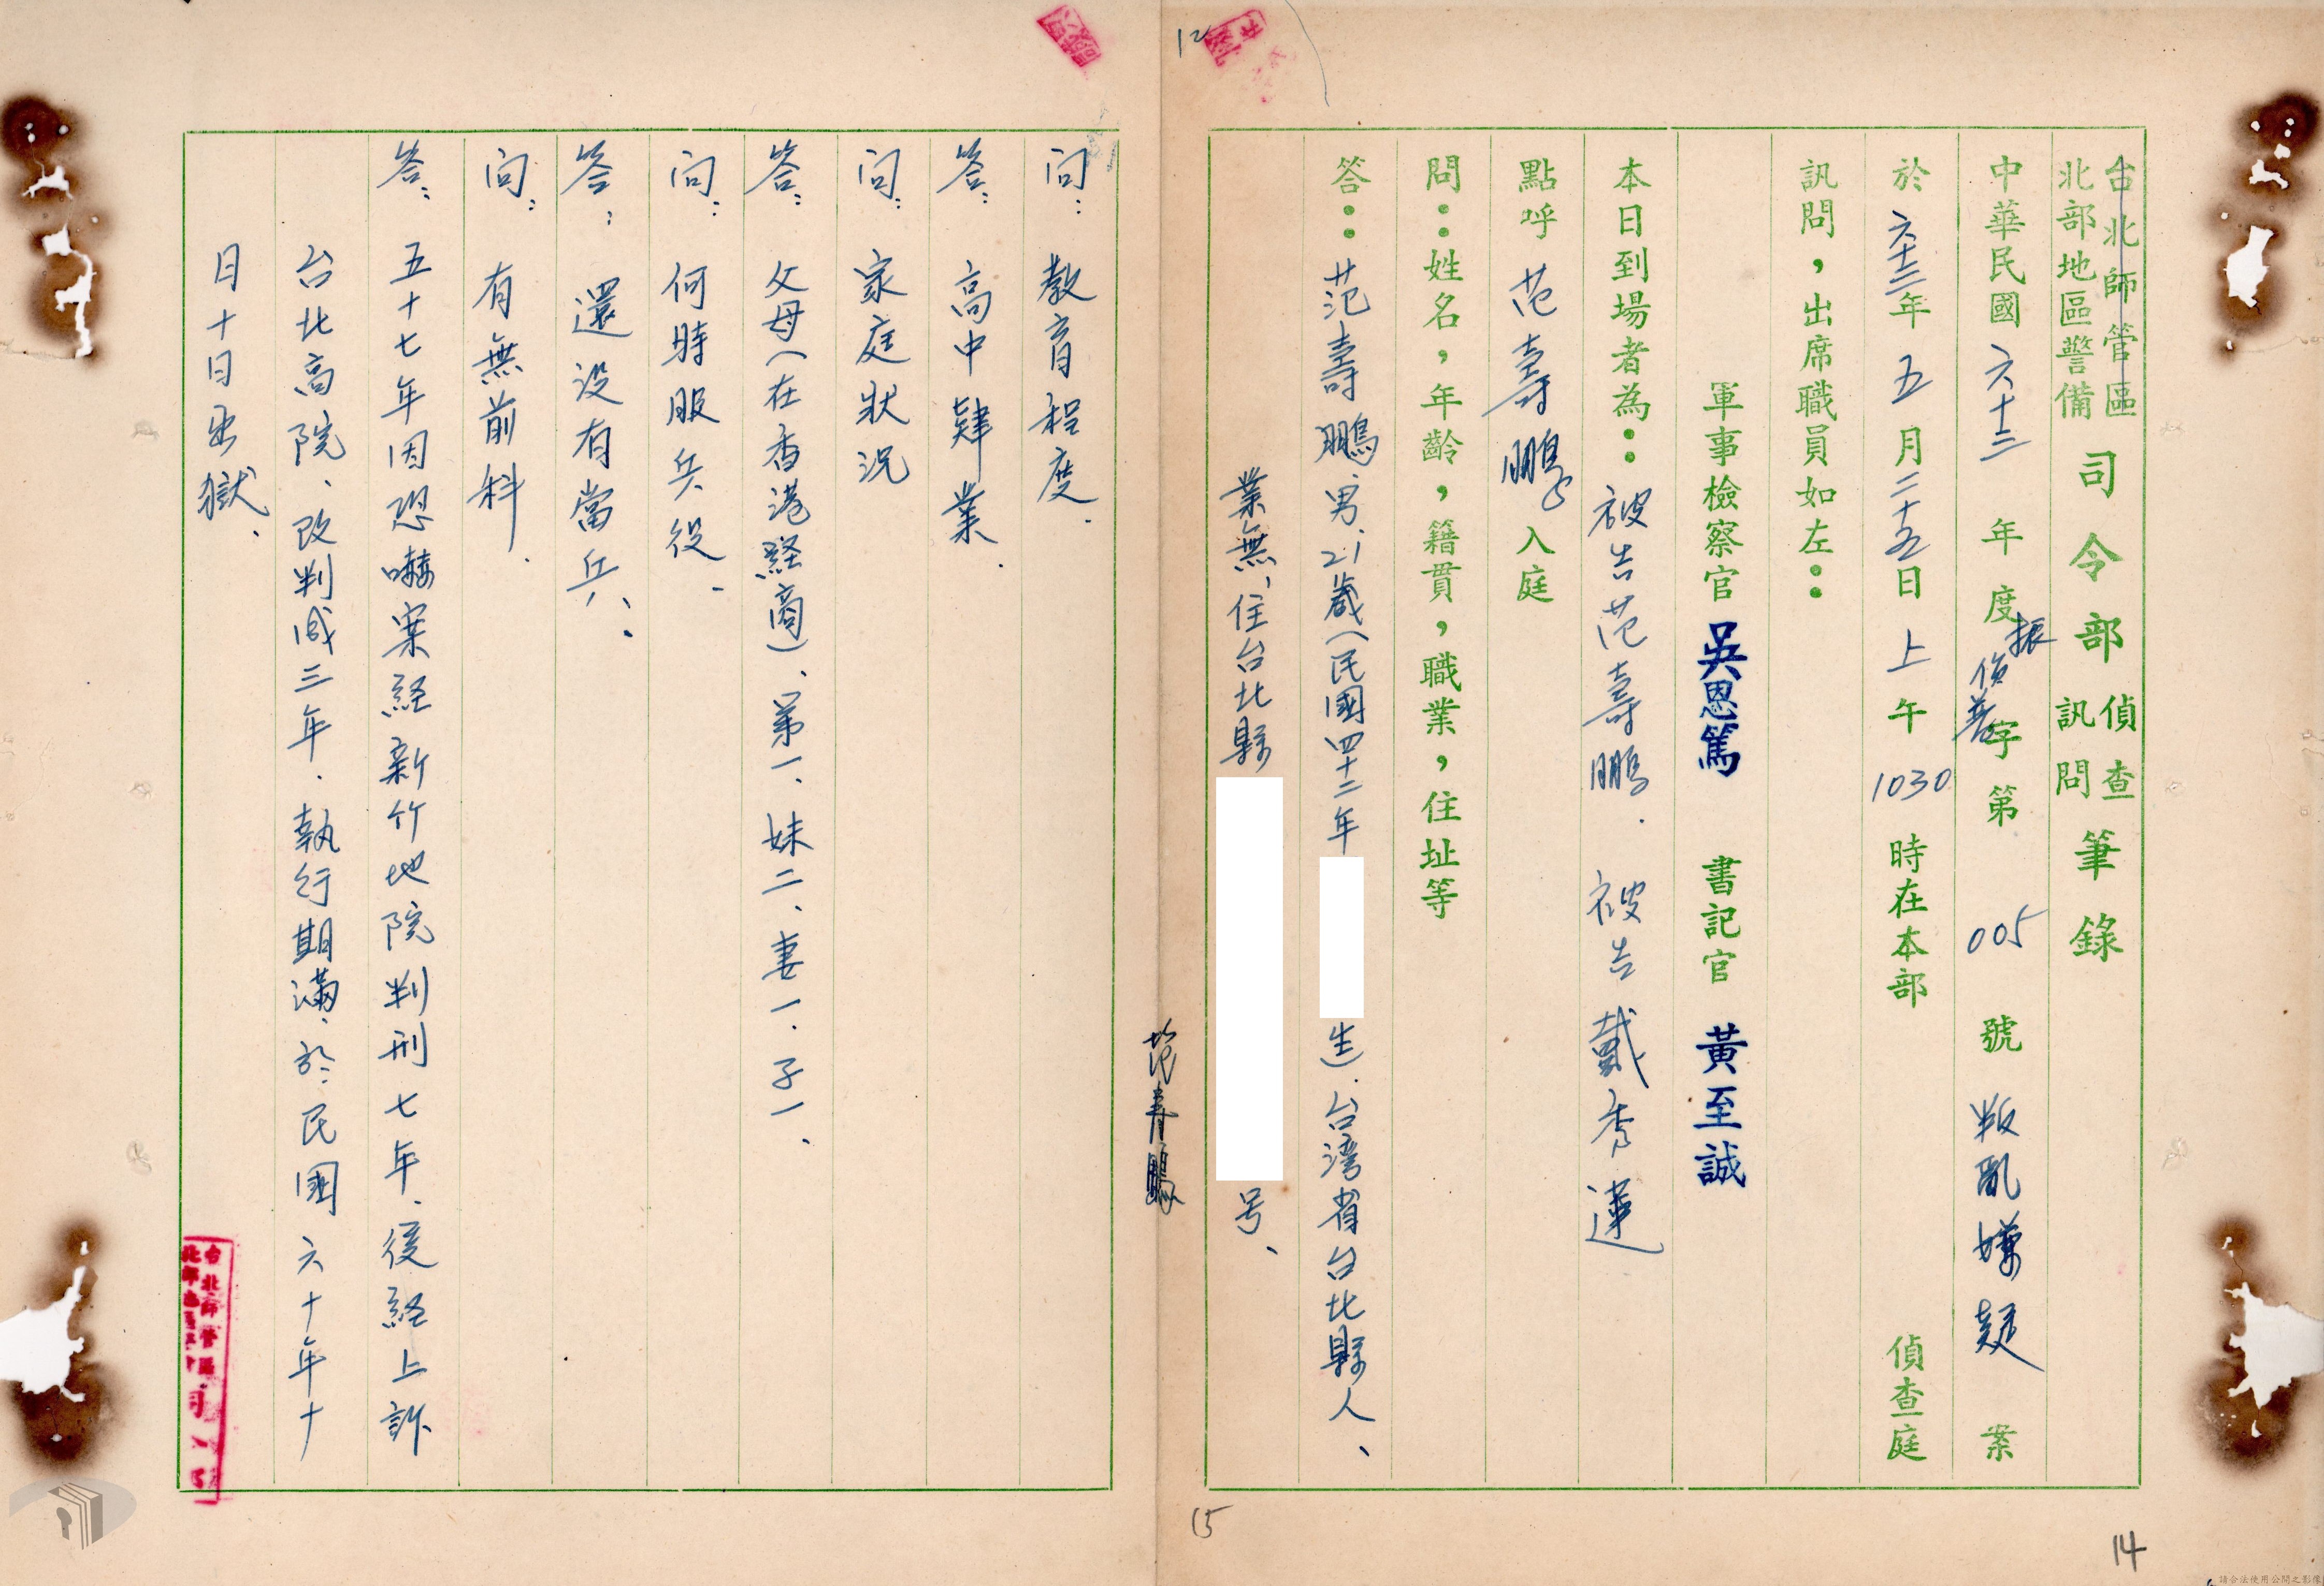 台北師管區
北部地區警備
司令部
偵查
訊問
筆錄
中華民國六十三年度振偵善字第005號叛亂嫌疑案
於六十三年五月二十五日上午1030時在本部偵查庭
訊問,出席職員如左:
軍事檢察官 吳恩篤 書記官 黃至誠
本日到場者為:被告范壽鵬.被告戴秀蓮
點呼范壽鵬入庭
問:姓名,年齡,籍貫,職業,住址等
答:范壽鵬、男、21歲(民國四十二年生)台湾省台北縣人、
業無,住台北縣号、
范壽鵬
問:教育程度.
答:高中肄業.
問:家庭狀況
答:父母(在香港経商)、第一、妹二、妻一.子一、
問:何時服兵役.
答:還没有當兵、
問:有無前科.
答:五十七年因恐嚇案経新竹地院判刑七年、後経上訴
台北高院、改判減三年.執行期滿、於民國六十年十
日十日出獄.
12
15
14
台北師管區
請合法使用公開之影像